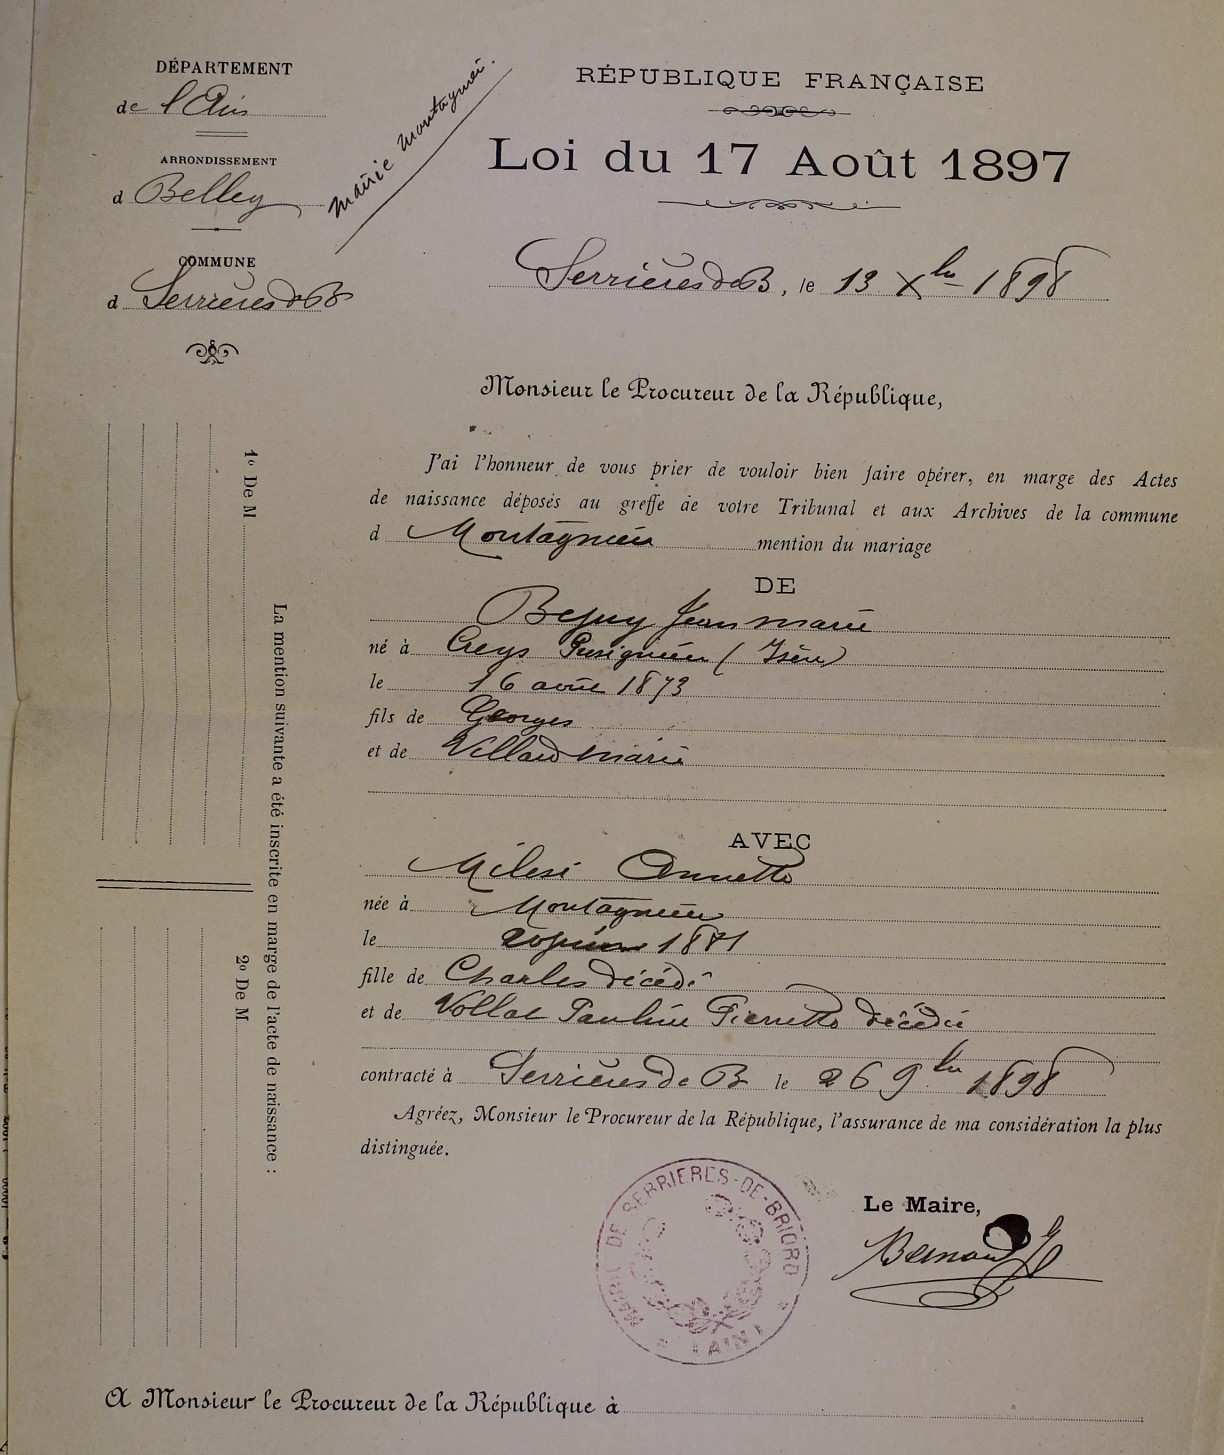 DÉPARTEMENT
de l'Ain
ARRONDISSEMENT
d Belley
COMMUNE
d Serrières de B
Mairie Montagnieu.
RÉPUBLIQUE FRANÇAISE
Loi du 17 Août 1897
Serrières de B, le 13 Xbre 1898
Monsieur le Procureur de la République,
J'ai l'honneur de vous prier de vouloir bien faire opérer, en marge des Actes
de naissance déposés au greffe de votre Tribunal et aux Archives de la commune
d Montagnieu mention du mariage
DE
Bejuy Jean marie
né à Creys Pusignieu (Isère)
le 16 août 1873
fils de Georges
et de Villard marie
AVEC
Milesi Annette
née à Montagnieu
le 1871
fille de Charles décédé
et de Vollat Pauline Pierrette décédée
contracté à Serrières de B le 26 9bre 1898
Agréez, Monsieur le Procureur de la République, l'assurance de ma considération la plus
distinguée.
Le Maire,
MAIRIE DE SERRIERES-DE-BRIORD
* (AIN) *
La mention suivante a été inscrite en marge de l'acte de naissance :
1º De M
2º De M
A Monsieur le Procureur de la République à